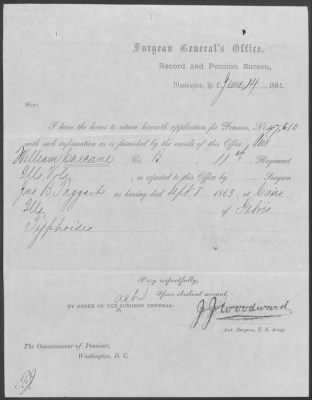 Surgeon General's Office,
Record and Pension Bureau,
Washington, D. C. June 14, 1864.
Sir:
I have the honor to return herewith application for Pension, No 47,610
with such information as is furnished by the records of this Office
William Co. B 11th Regiment
Ills. Vols. is reported to this Office by Surgeon
Jno B. Taggart as having died Sept 8 1863, at Cairo
Ills of Febris
Typhoides
Very respectfully,
Your obedient servant,
actg
BY ORDER OF THE SURGEON GENERAL:
J. J. Woodward
Asst. Surgeon, U. S. Army.
The Commissioner of Pensions,
Washington, D. C.